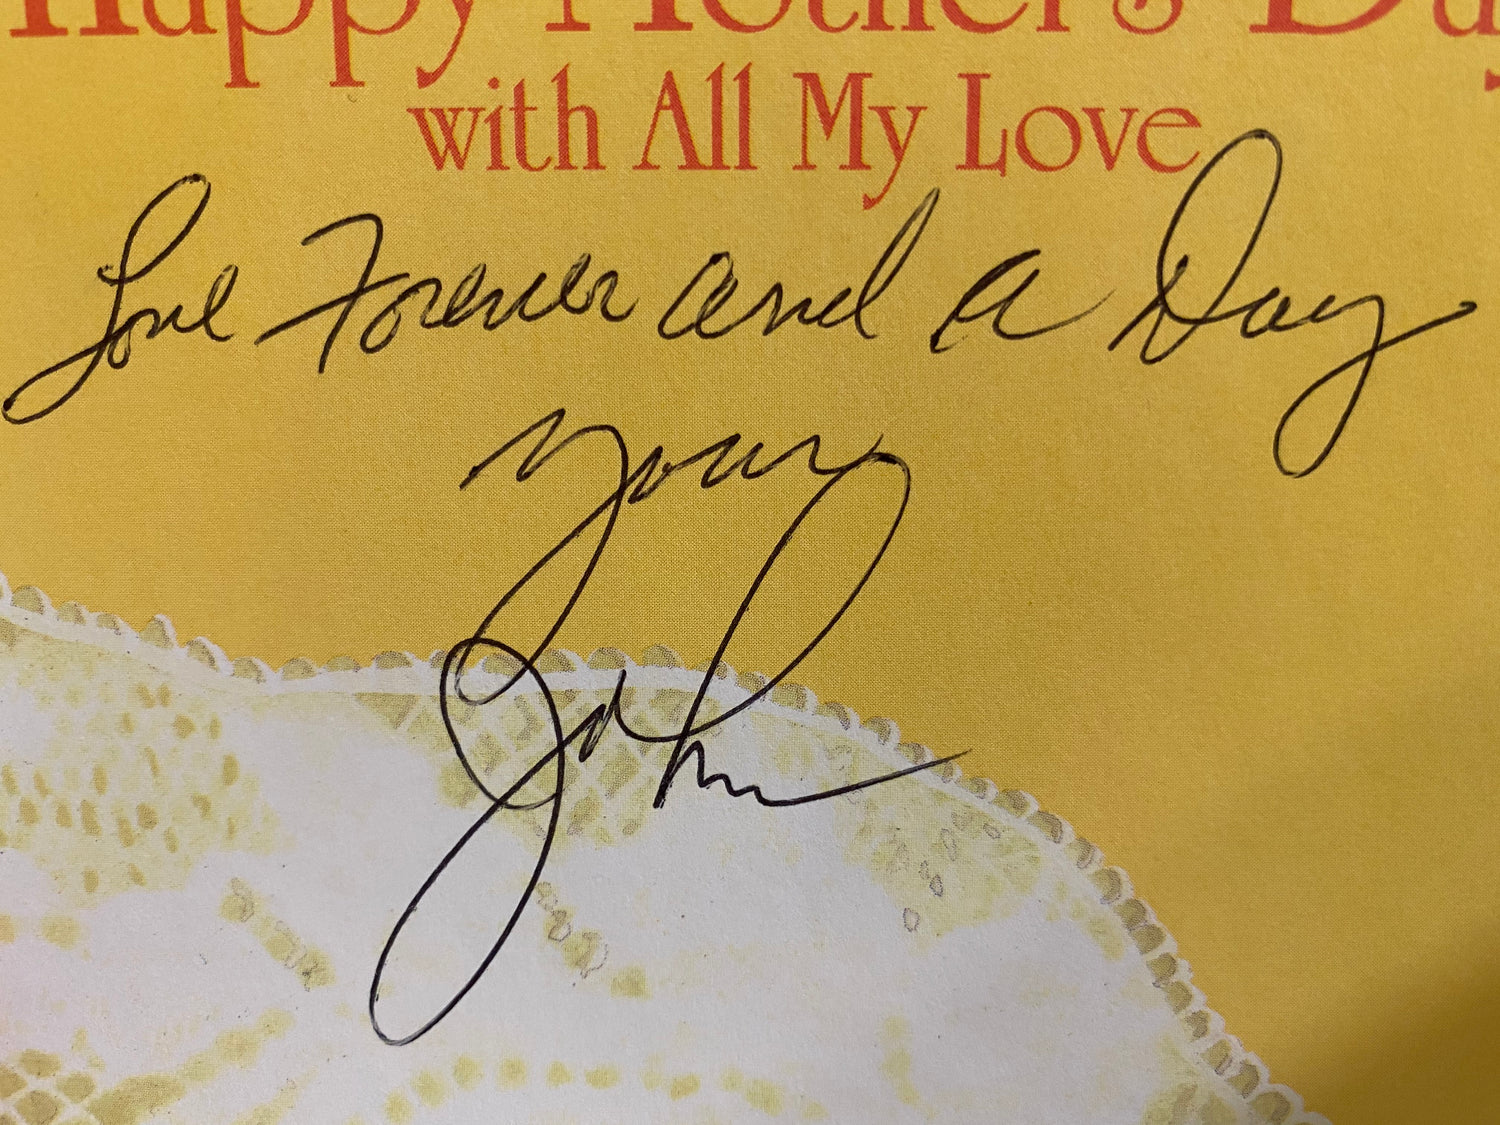 Happy Mother's Day
with All My Love
Love Forever and a Day
Your
John